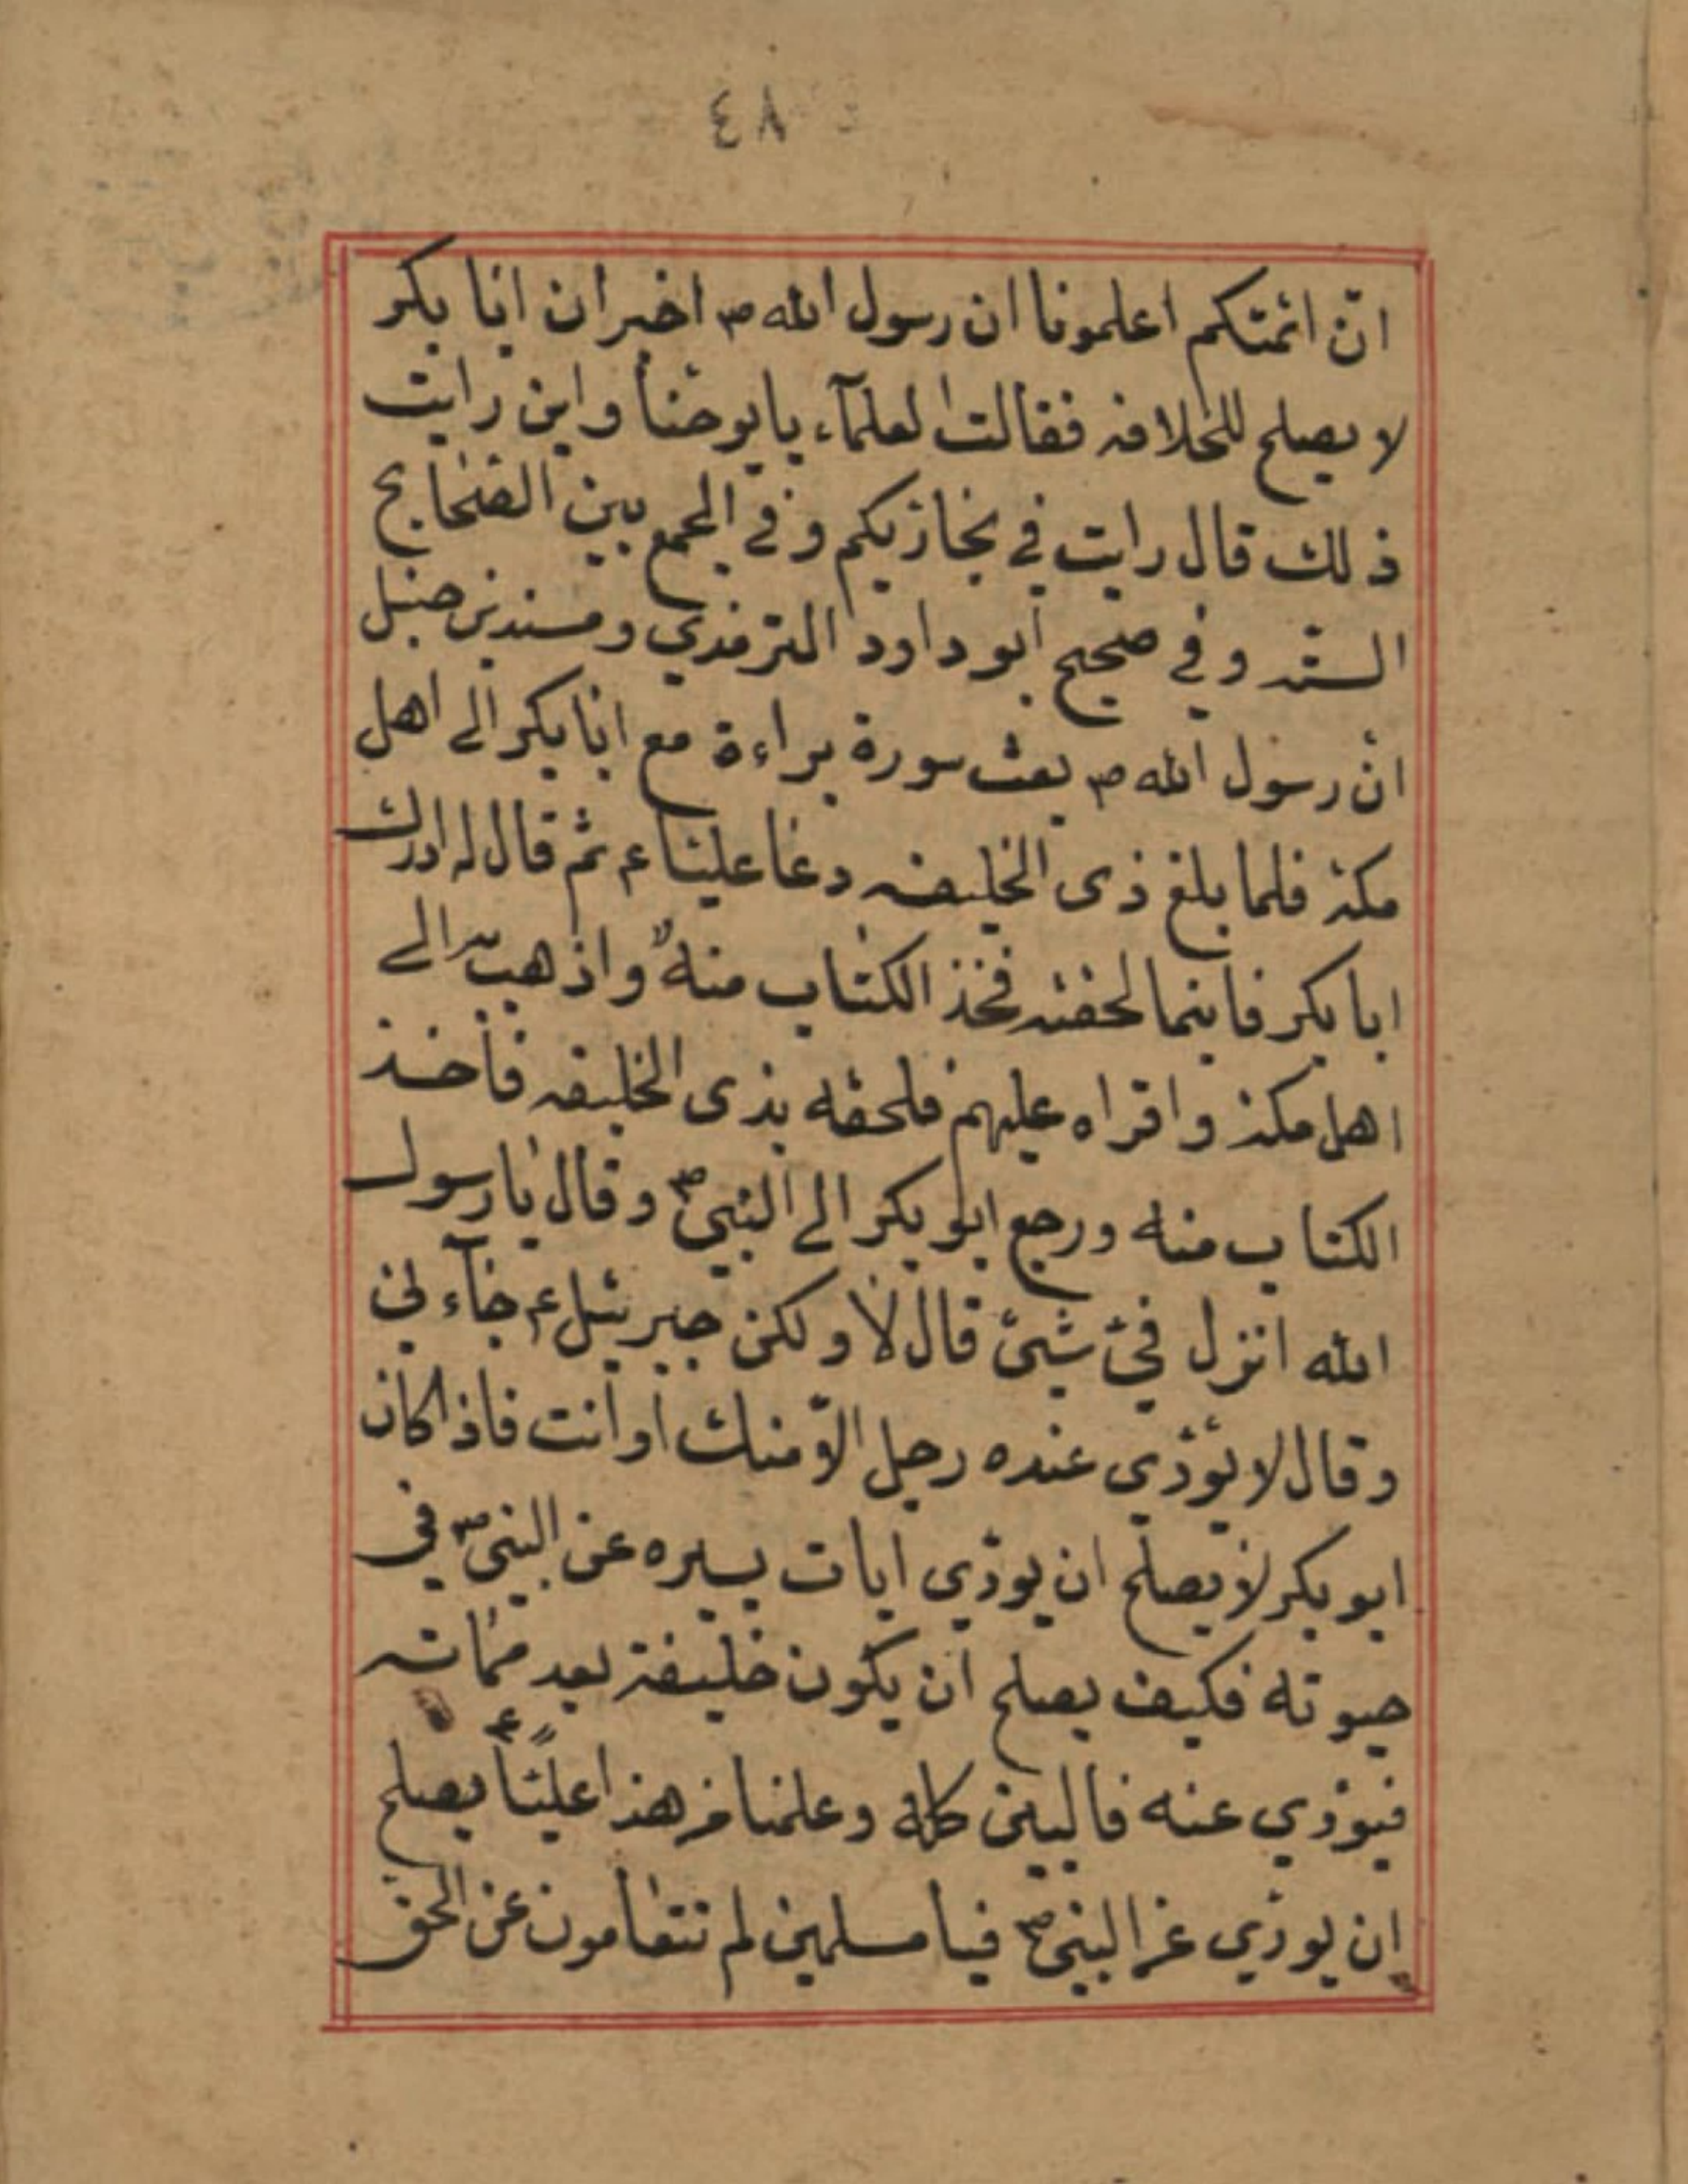 ٤٨
انّ ائمتكم اعلمونا ان رسول الله ص اخبر ان ابا بكر
لا يصلح للخلافه فقالت العلمآء يا يوحنا واين رايت
ذلك قال رايت في بخاريكم وفي الجمع بين الصحايح
الستّه وفي صحيح ابو داود الترمذي ومسند بن حنبل
انّ رسول الله ص بعث سورة براءة مع ابا بكر الى اهل
مكة فلما بلغ ذى الحليفه دعا عليّا ع ثم قال له ادرك
ابا بكر فاينما لحقته فخذ الكتاب منه واذهب به الى
اهل مكة واقراه عليهم فلحقه بذى الحليفه فاخذ
الكتاب منه ورجع ابو بكر الى النبيّ ص وقال يا رسول
الله انزل فيّ شيئ قال لا ولكن جبرئيل ع جآء ني
وقال لا يؤدّي عنده رجل الاّ منك او انت فاذا كان
ابو بكر لا يصلح ان يودّي ايات يسيره عن النبيّ ص في
حيوته فكيف يصلح ان يكون خليفة بعد مماته
فيودّي عنه فالبين كله وعلمنا من هذا عليّاً ع يصلح
ان يودّي عن النبيّ ص فيا مسلمين لم تتعامون عن الحق